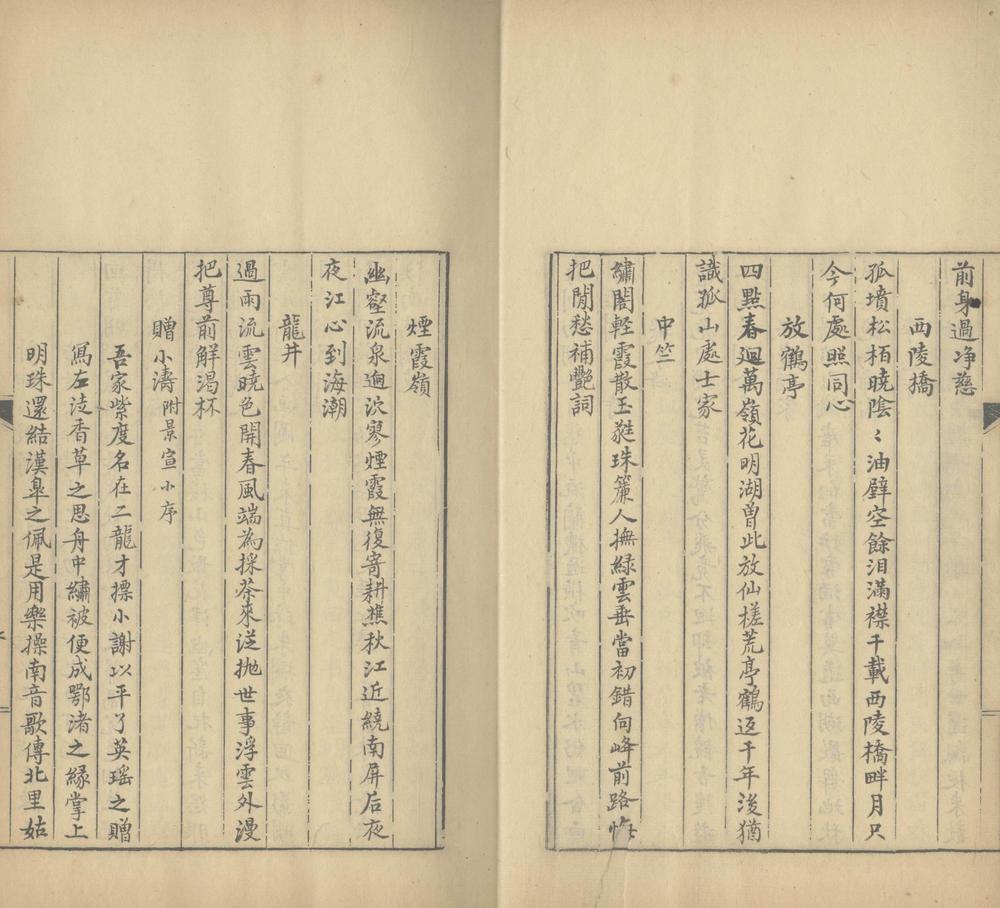 前身過净慈
西陵橋
孤墳松栢曉陰〻油壁空餘泪滿襟千載西陵橋畔月只
今何處照同心
放鶴亭
四㸃春廻萬嶺花明湖曽此放仙槎荒亭鶴返千年後猶
識孤山處士家
中竺
繡閣輕霞散玉蕤珠簾人撫綠雲垂當初錯向峰前路悔
把閒愁補艷詞
煙霞嶺
幽壑流泉迴泬寥煙霞無復寄耕樵秋江近繞南屏后夜
夜江心到海潮
龍井
過雨流雲曉色開春風端為採茶來從拋世事浮雲外漫
把尊前解渴杯
贈小濤附景宣小序
吾家紫度名在二龍才摽小謝以平了英瑶之贈
寫左徒香草之思舟中繡被便成鄂渚之緣掌上
明珠還結漢皐之佩是用樂操南音歌傳北里姑